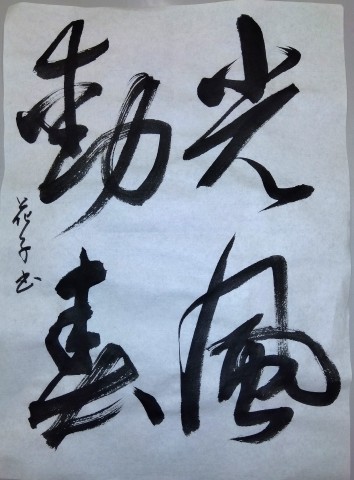 光風
動春
花子书